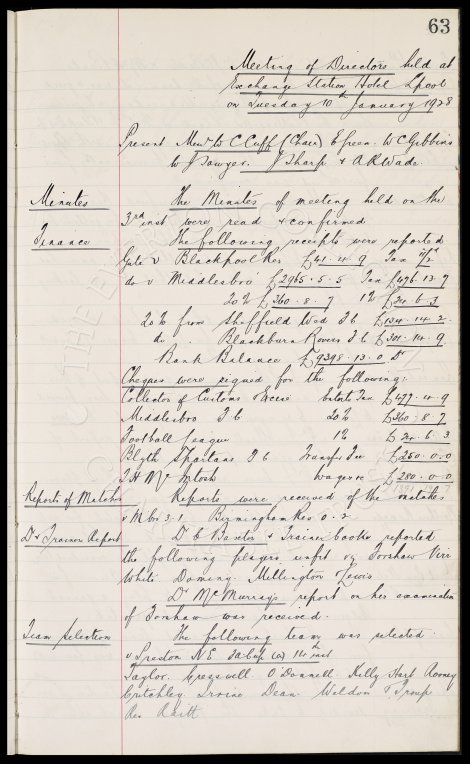 63
Meeting of Directors held at
Exchange Station Hotel Lpool
on Tuesday 10th January 1928
Present Messrs W C Cuff (Chair) E Green. W C Gibbins
W J Sawyer. J Sharp & A R Wade.
Minutes The Minutes of meeting held on the
3rd inst were read & confirmed
Finance The following receipts were reported
Gate v Blackpool Res £41.4.9 Tax
do v Middlesboro £2965.5.5 Tax £476.13.7
20% £360.8.7 1% £24.6.3
20% from Sheffield Wed F C £134.14.2
do. Blackburn Rovers F C £301.14.9
Bank Balance £9398.13.0 Dr
Cheques were signed for the following:
Collector of Customs & Excise Entets Tax £477.4.9
Middlesboro F C 20% £360.8.7
Football League 1% £24.6.3
Blyth Spartans F C Transfer Fee £250.0.0
T H McIntosh wages &c £280.0.0
Reports of Matches Reports were received of the matches
v M'bro 3.1. Birmingham Res 0.2
Dr & Trainers Report Dr C Baxter & Trainer Cooke reported
the following players unfit vz Forshaw Virr
White Dominy Millington Lewis
Dr McMurray's report on his examination
of Forshaw was received.
Team Selection The following team was selected
v Preston N E FA Cup (a) 14th inst
Taylor. Cresswell. O'Donnell. Kelly Hart Rooney
Critchley Irvine Dean Weldon & Troup
Res Raitt